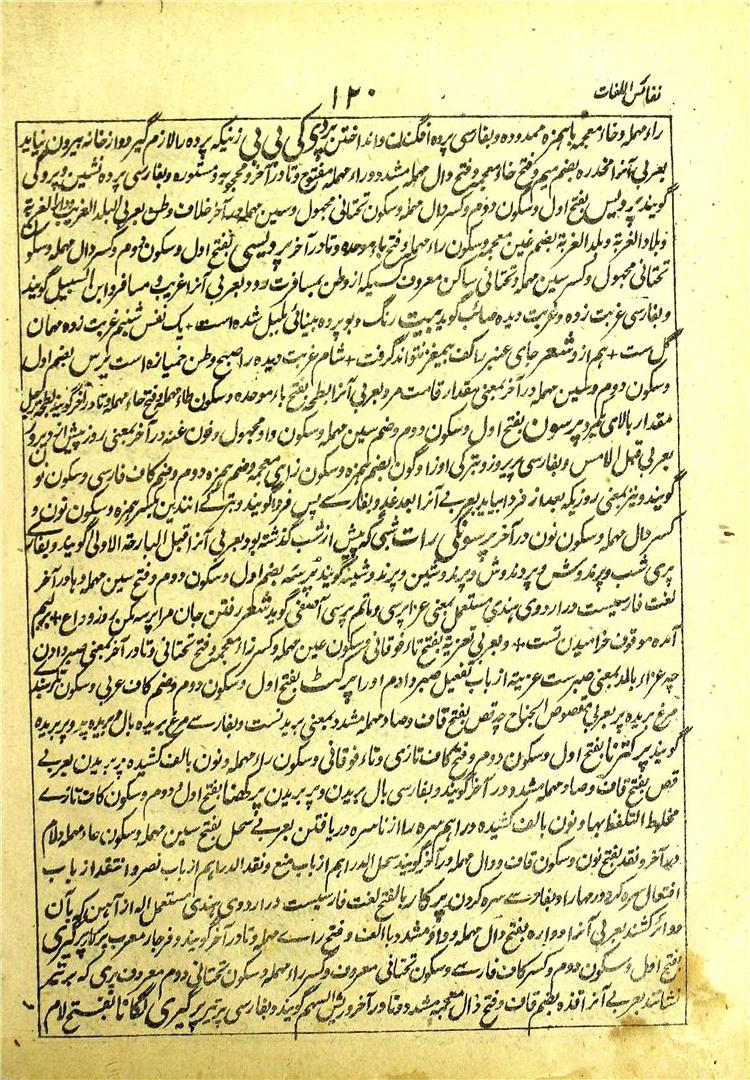 نفائس اللغات
۱۲۰
راء مهمله وخاء معجمه با همزه ممدوده وبفارسی پرده افگندن وانداختن پردی کی بی بی زنیکه پرده را لازم گیرد واز خانه بیرون نیاید
بعربی آنرا مخدره بضم میم وفتح خاء معجمه وفتح دال مهمله مشدد وراء مهمله مفتوح وتا در آخر ومحجبه ومستوره وبفارسی پرده نشین وپردگی
گویند پردیس بفتح اول وسکون دوم وکسر دال مهمله وسکون تحتانی مجهول وسین مهمله در آخر خلاف وطن بعربی البلد الغریب
وبلاد الغربة وبلد الغربة بضم غین معجمه وسکون راء مهمله وفتح باء موحده وتا در آخر پردیسی بفتح اول وسکون دوم وکسر دال مهمله وسکون
تحتانی مجهول وکسر سین مهمله وتحتانی ساکن معروف کسیکه از وطن بمسافرت رود بعربی آنرا غریب ومسافر وابن السبیل گویند
وبفارسی غربت زده وغربت دیده صائب گوید بیت رنگ وبو پرده بینائی بلبل شده است + یک نفس شبنم غربت زده مهمان
گل ست + هم از وشعر جای عنبر را کف بیمغز نتواند گرفت + شام غربت دیده را صبح وطن خمیازه است پرس بضم اول
وسکون دوم وسین مهمله در آخر بمعنی مقدار قامت مرد بعربی آنرا بفتح باء موحده وسکون طاء مهمله وفتح حاء مهمله وتا در آخر گویند
مقدار بالای مرد پرسون بفتح اول وسکون دوم وضم سین مهمله وسکون واو مجهول ونون غنه در آخر بمعنی روز پیش از دیروز
بعربی قبل الامس وبفارسی پریروز وبترکی اوزاگون بضم همزه وسکون زای معجمه وضم همزه دوم وضم کاف فارسی وسکون نون
گویند ونیز بمعنی روزیکه بعد از فردا بیاید بعربی آنرا بعد غد وبفارسی پس فردا گویند وبترکی اندین بکسر همزه وسکون نون و
کسر دال مهمله وسکون نون در آخر پرسونکی رات شبی که پیش از شب گذشته بود بعربی آنرا قبل البارقة الاولی گویند وبفارسی
پری شب وپرندوش وپردندوش وپرندوشین وپرندوشینه گویند پرسه بضم اول وسکون دوم وفتح سین مهمله وها در آخر
لغت فارسیست در اردوی هندی مستعمل بمعنی عزا پرسی وماتم پرسی آصفی گوید شعر رفتن جان مرا پرسه کن روز وداع +
آمده موقوف خرامیدن تست + وبعربی تعزیه بفتح تاء فوقانی وسکون عین مهمله وکسر زاء معجمه وفتح تحتانی وتا در آخر بمعنی صبر دادن
چه عزاء بالمد بمعنی صبرست عزیته از باب تفعیل صبر دادم اورا پرکٹ بفتح اول وسکون دوم وضم کاف عربی وسکون
مرغ بریده پر بعربی مقصوص الجناح چه قص بفتح قاف وصاد مهمله مشدد بمعنی بریدنست وبفارسی مرغ بریده بال وبریده پر وپر بریده
گویند پر کترنا بفتح اول وسکون دوم وفتح کاف تازی وتاء فوقانی وسکون راء مهمله ونون بالف کشیده پر بریدن بعربی
قص بفتح قاف وصاد مهمله مشدد در آخر گویند وبفارسی بال بریدن وپر بریدن پرکهنا بفتح اول ودوم وسکون کاف تازی
مخلوط التلفظ بها ونون بالف کشیده دراهم سره را از ناسره دریافتن بعربی سحل بفتح سین مهمله وسکون حاء مهمله ولام
در آخر ونقد بفتح نون وسکون قاف ودال مهمله در آخر گویند سحل الدراهم از باب منع ونقد الدراهم از باب نصر وانتقد از باب
افتعال سره کرد درمهارا وبفارسی سره کردن پرکار بالفتح لغت فارسیست در اردوی هندی مستعمل اله از آهن که بآن
دوائر کشند بعربی آنرا دواره بفتح دال مهمله وواو مشدد بالف وفتح راء مهمله وتا در آخر گویند وفرجار معرب پرکار پرگیری
بفتح اول وسکون دوم وکسر کاف فارسی وسکون تحتانی معروف وکسر راء مهمله وسکون تحتانی دوم معروف پری که بر تیر
نشانند بعربی آنرا قذه بضم قاف وفتح ذال معجمه مشدد وتا در آخر وریش السهم گویند وبفارسی پر تیر پرگیری لگانا بفتح لام